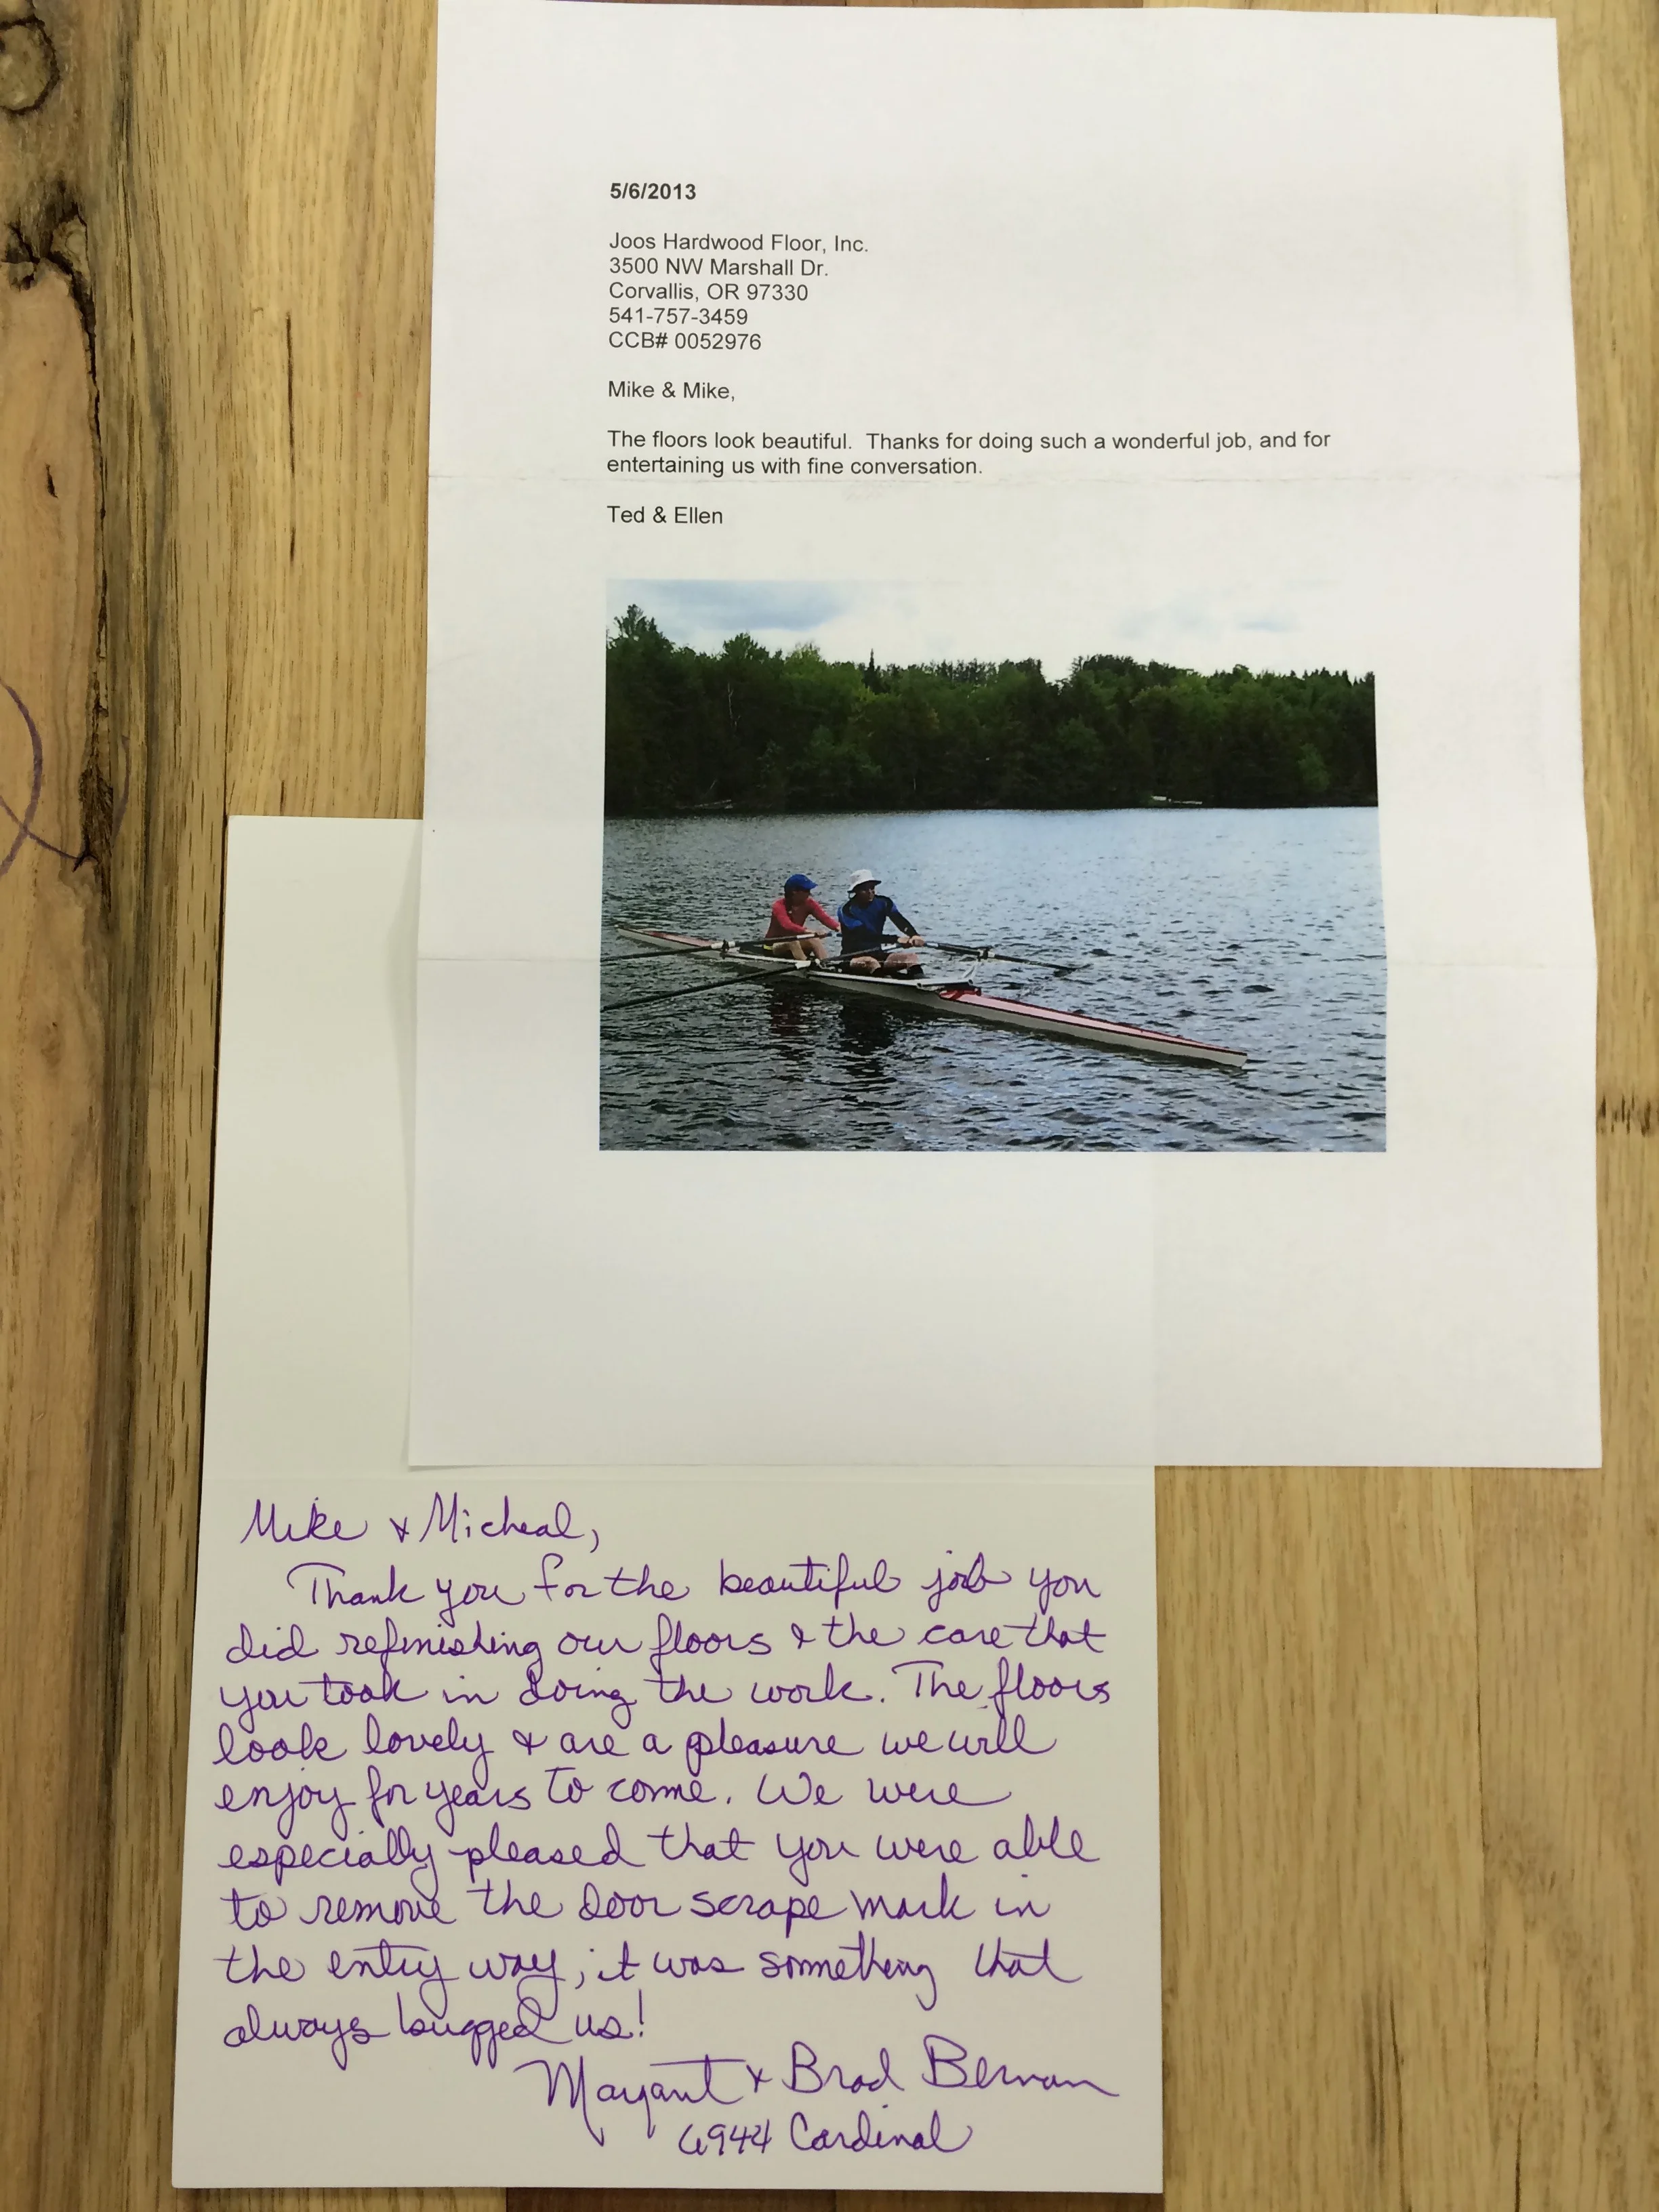 5/6/2013
Joos Hardwood Floor, Inc.
3500 NW Marshall Dr.
Corvallis, OR 97330
541-757-3459
CCB# 0052976
Mike & Mike,
The floors look beautiful. Thanks for doing such a wonderful job, and for
entertaining us with fine conversation.
Ted & Ellen
Mike & Micheal,
Thank you for the beautiful job you
did refinishing our floors & the care that
you took in doing the work. The floors
look lovely & are a pleasure we will
enjoy for years to come. We were
especially pleased that you were able
to remove the door scrape mark in
the entry way; it was something that
always bugged us!
& Brad
6944 Cardinal